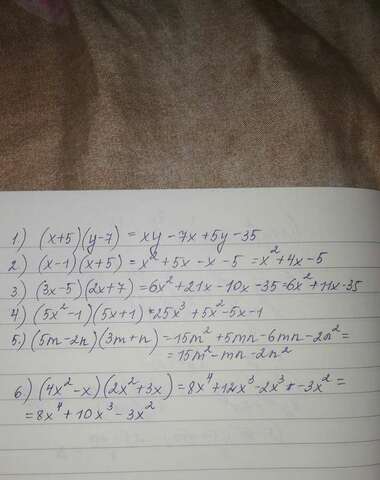 1) (x+5)(y-7) = xy -7x +5y -35
2) (x-1)(x+5) = x²+5x -x -5 = x²+4x-5
3) (3x-5)(2x+7) = 6x²+21x-10x-35=6x²+11x-35
4) (5x²-1)(5x+1) = 25x³+5x²-5x-1
5) (5m-2n)(3m+n) = 15m²+5mn-6mn-2n²=
= 15m²-mn-2n²
6.) (4x²-x)(2x²+3x) = 8x⁴+12x³-2x³-3x² =
= 8x⁴+10x³-3x²